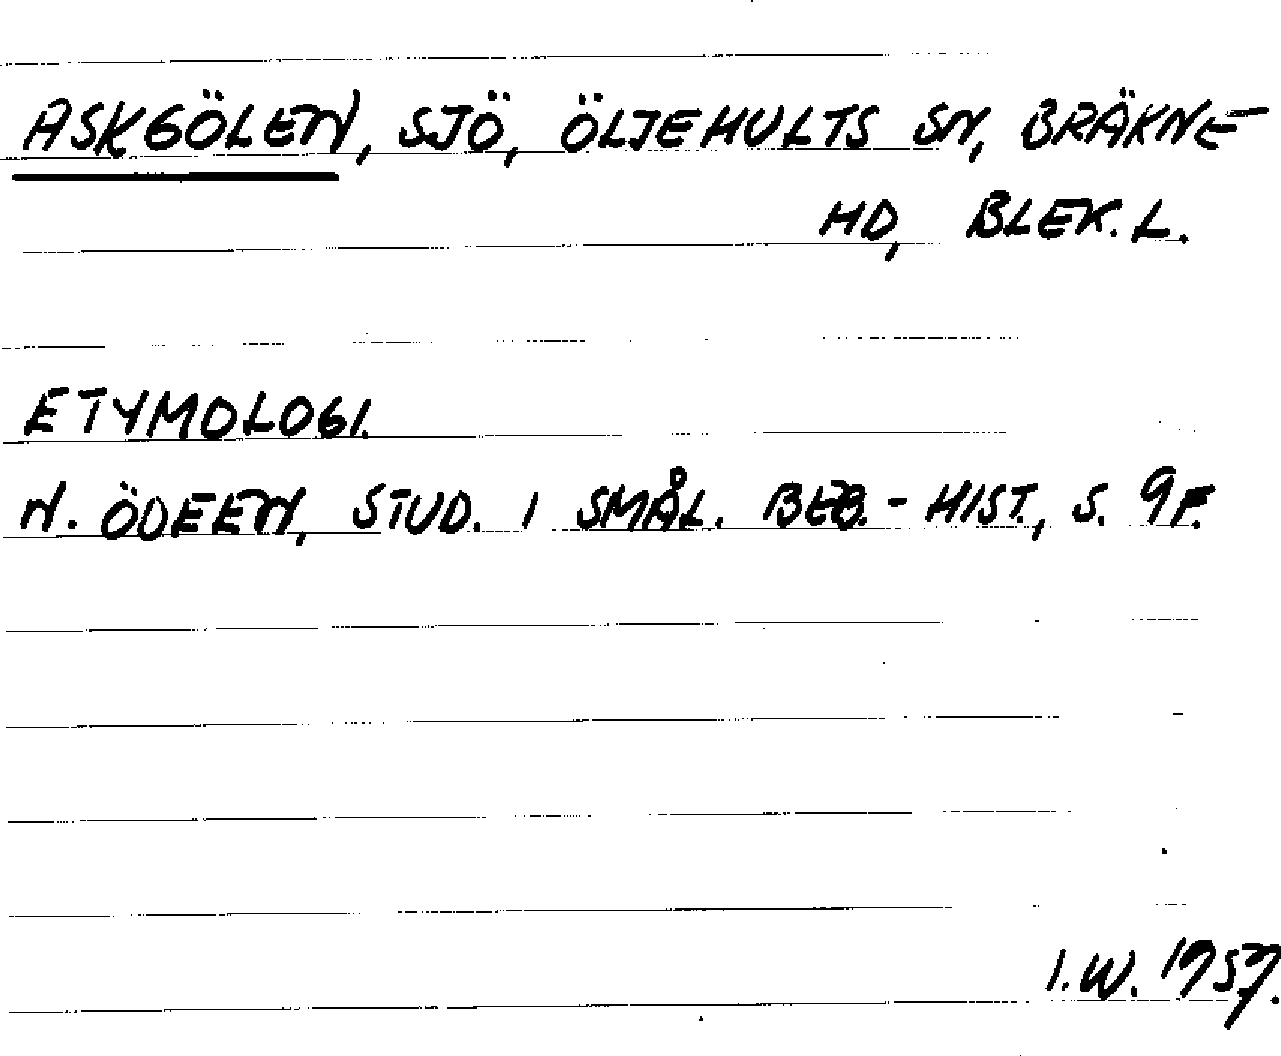 ASKGÖLEN, SJÖ, ÖLJEHULTS SN, BRÄKNE-
HD, BLEK. L.
ETYMOLOGI.
N. ÖDEEN, STUD. I SMÅL. BEB.-HIST., S. 9 F.
I.W. 1957.